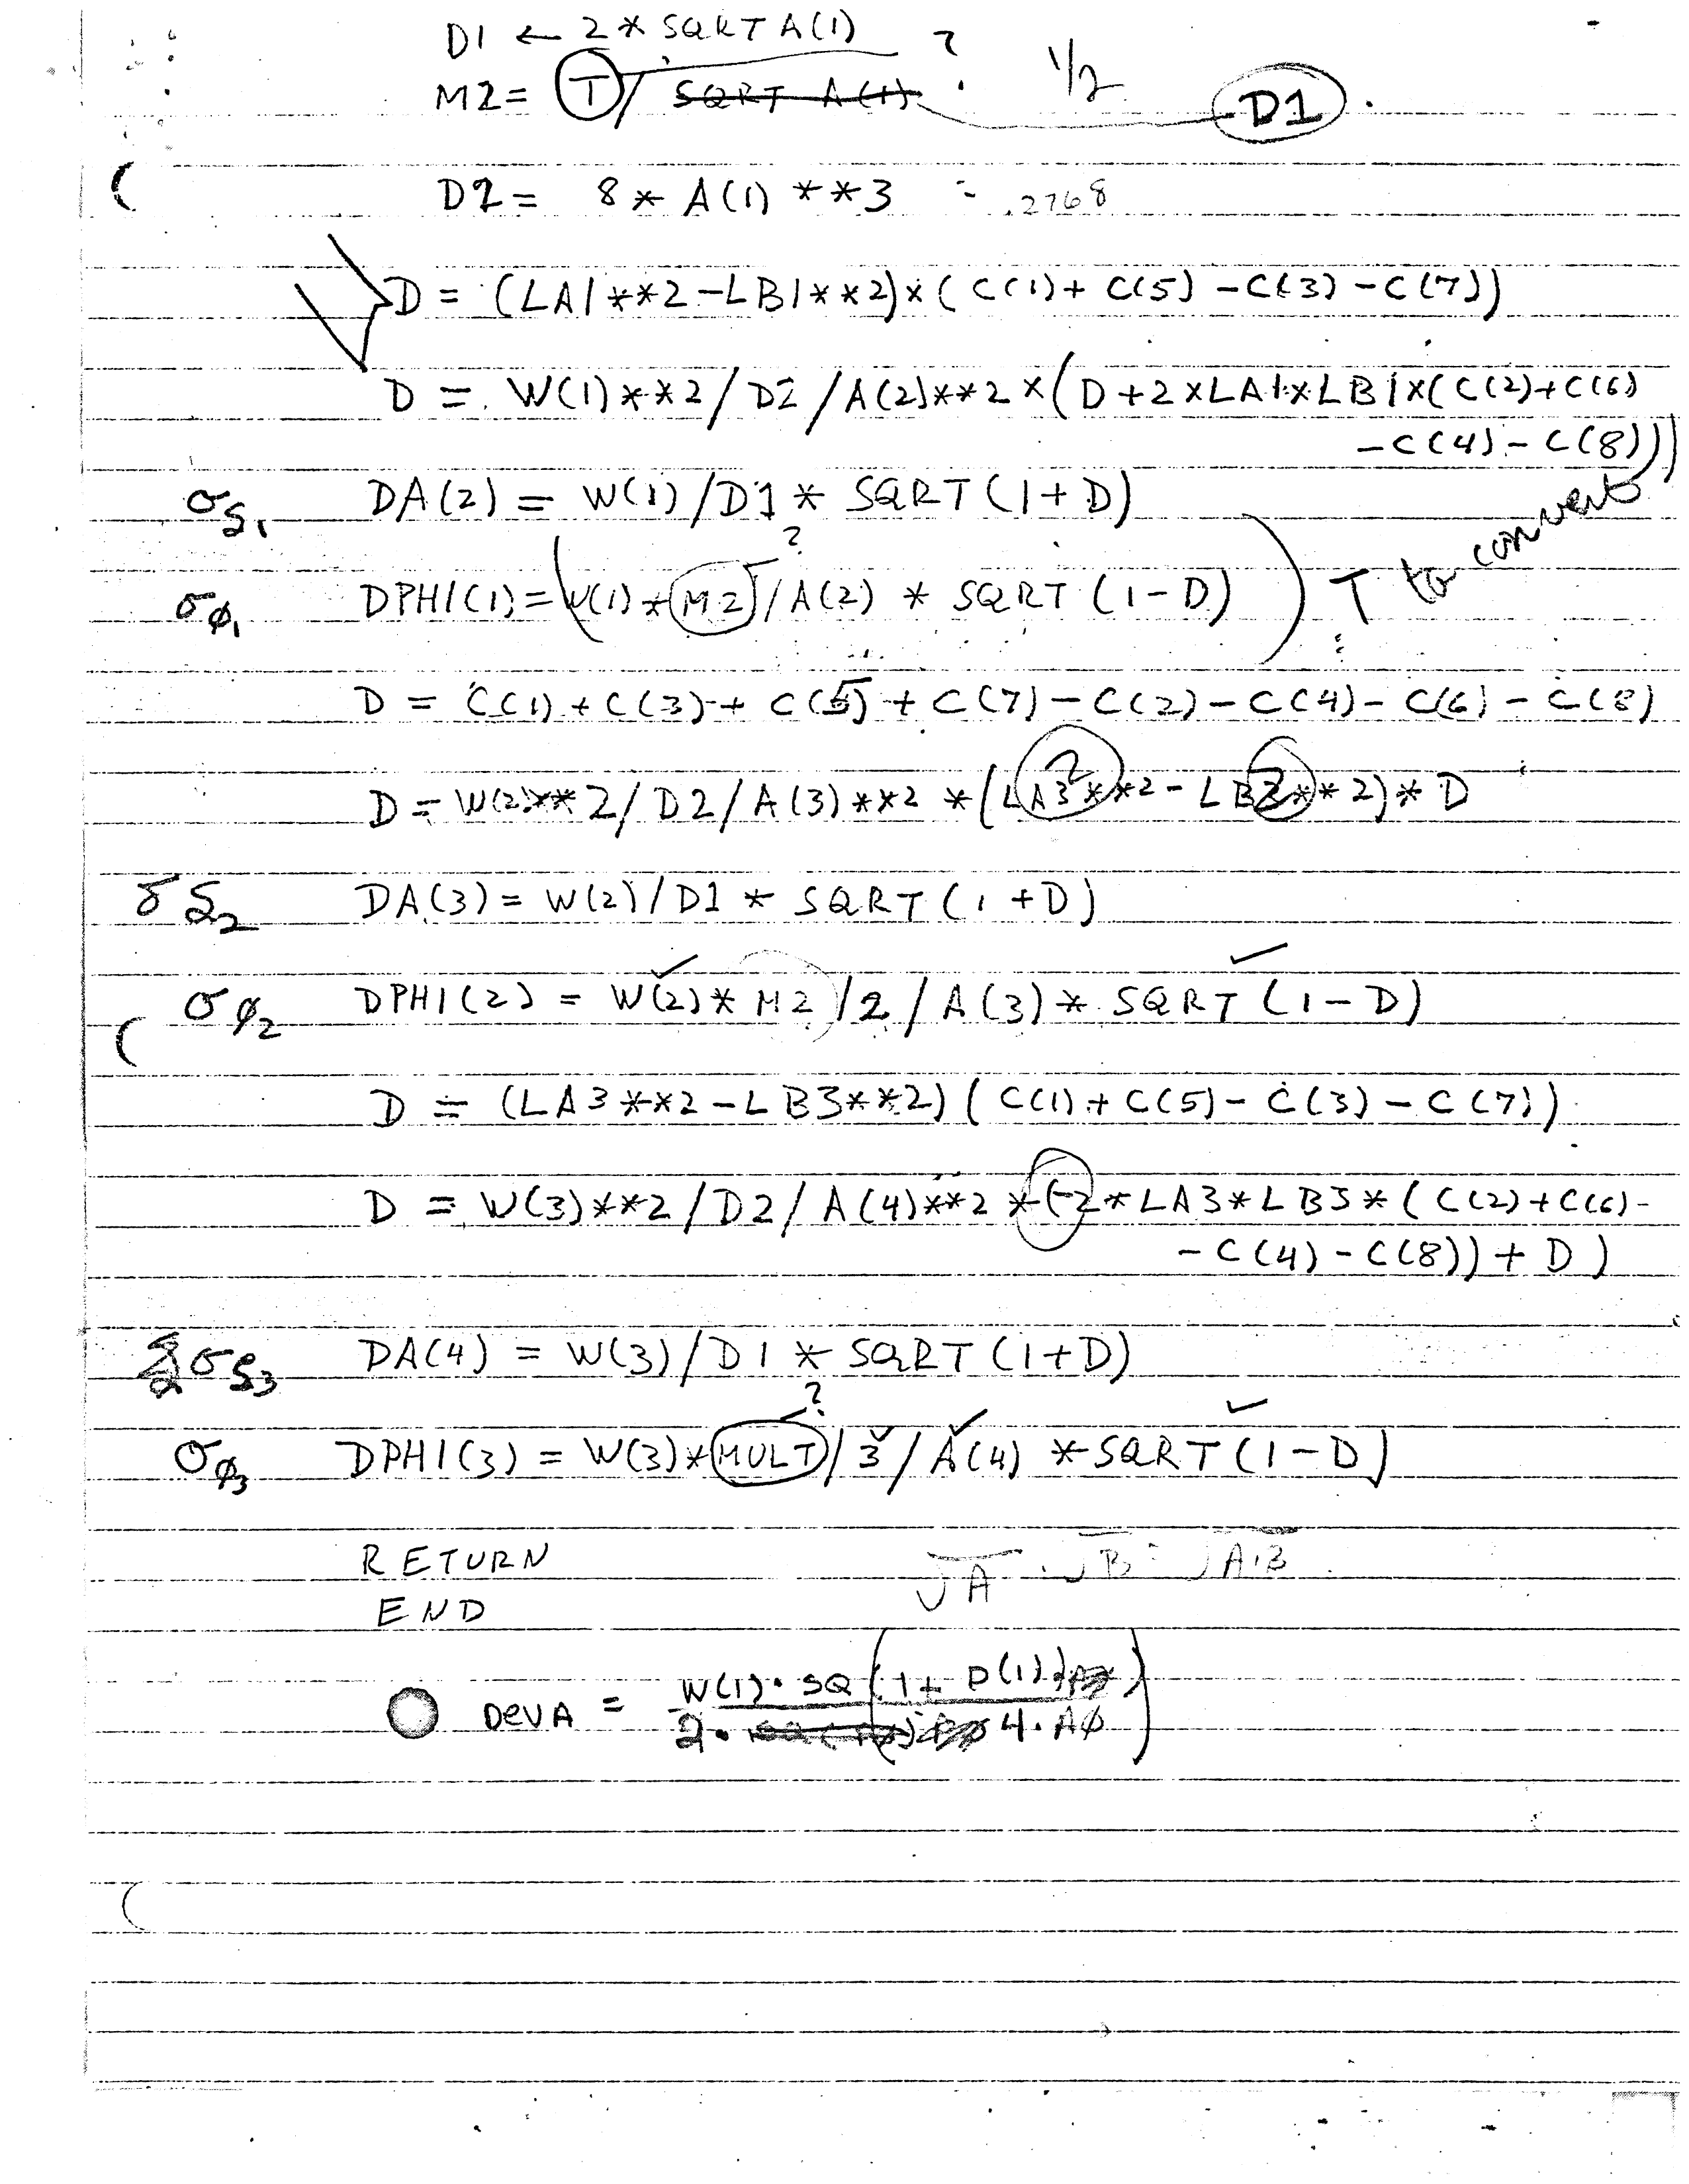 D1 ← 2 * SQRT A(1)
M2 = T / SQRT A(1) ? 1/2 D1 .
D2 = 8 * A(1) **3 = .2768
D = (LA1**2-LB1**2)×(C(1)+C(5)-C(3)-C(7))
D = W(1)**2/D2/A(2)**2×(D+2×LA1×LB1×(C(2)+C(6)
-C(4)-C(8)))
σS1 DA(2) = W(1)/D1 * SQRT(1+D)
?
σφ1 DPHI(1)=(W(1)*M2)/A(2) * SQRT(1-D) ) T to convert
D = C(1)+C(3)+C(5)+C(7)-C(2)-C(4)-C(6)-C(8)
D = W(2)**2/D2/A(3)**2 *(LA2**2-LB2**2)*D
σS2 DA(3) = W(2)/D1 * SQRT(1+D)
σφ2 DPHI(2) = W(2)*M2/2/A(3)* SQRT(1-D)
D = (LA3**2-LB3**2)(C(1)+C(5)-C(3)-C(7))
D = W(3)**2/D2/A(4)**2*(-2*LA3*LB3*(C(2)+C(6)-
-C(4)-C(8))+D)
σS3 DA(4) = W(3)/D1 * SQRT(1+D)
?
σφ3 DPHI(3) = W(3)*MULT/3/A(4) *SQRT(1-D)
RETURN √A · √B = √A·B
END
DevA = W(1)·SQ(1+ D(1)
2· 4·Aφ)